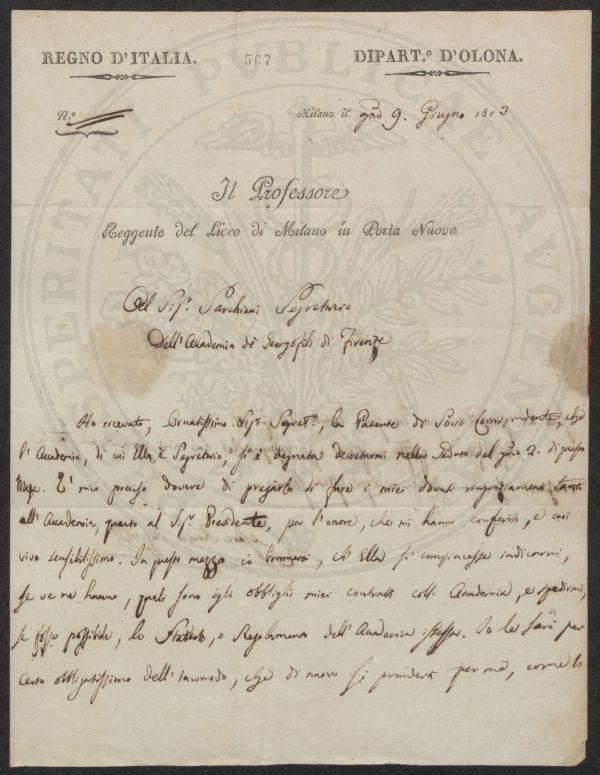 REGNO D'ITALIA. 567 DIPART.º D'OLONA.
N.º Milano il gno 9. Giugno 1813
Il Professore
Reggente del Liceo di Milano in Porta Nuova
Al Sig.r Sarchiani Segretario
Dell'Accademia de' Georgofili di Firenze
Ho ricevuto, Ornatissimo Sig.r Segret.º, la Patente di Socio Corrispondente, che
l'Accademia, di cui Ella è Segretario, si è degnata decretarmi nella Seduta del gno 2. di questo
Mese. È mio preciso dovere di pregarla di fare i miei dovuti ringraziamenti tanto
all'Accademia, quanto al Sig.r Presidente, per l'onore, che mi hanno conferito, e cui
vivo sensibilissimo. In questo mezzo io bramerei, ch'Ella si compiacesse indicarmi,
se ve ne hanno, quali sono gli obblighi miei contratti coll'Accademia, e spedirmi,
se fosse possibile, lo Statuto, o Regolamento dell'Accademia istessa. Io le sarò per
certo obbligatissimo dell'incomodo, che di nuovo si prenderà per me, come lo
PROSPERITATI PUBLICAE AUGENDAE